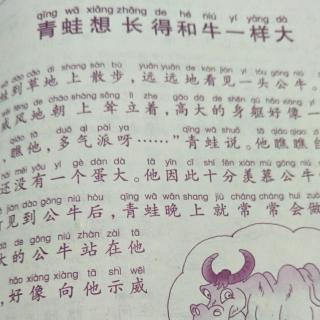 qīng wā xiǎng zhǎng de hé niú yí yàng dà
青蛙想长得和牛一样大
dào cǎo dì shang sàn bù yuǎn yuǎn de kàn jiàn yì tóu gōng niú
蛙到草地上散步，远远地看见一头公牛。
wēi fēng de cháo shàng sǒng lì zhe gāo dà de shēn qū hǎo xiàng yí
威风地朝上耸立着，高大的身躯好像一
qiáo tā duō qì pài ya qīng wā shuō tā qiáo qiao zì
，瞧他，多气派呀……”青蛙说。他瞧瞧自
hái méi yǒu yí gè dàn dà tā yīn cǐ shí fēn xiàn mù gōng niú
还没有一个蛋大。他因此十分羡慕公牛
jiàn dào gōng niú hòu qīng wā wǎn shang jiù cháng cháng huì zuò
见到公牛后，青蛙晚上就常常会做
dà de gōng niú zhàn zài tā
大的公牛站在他
hǎo xiàng xiàng tā shì wēi
，好像向他示威